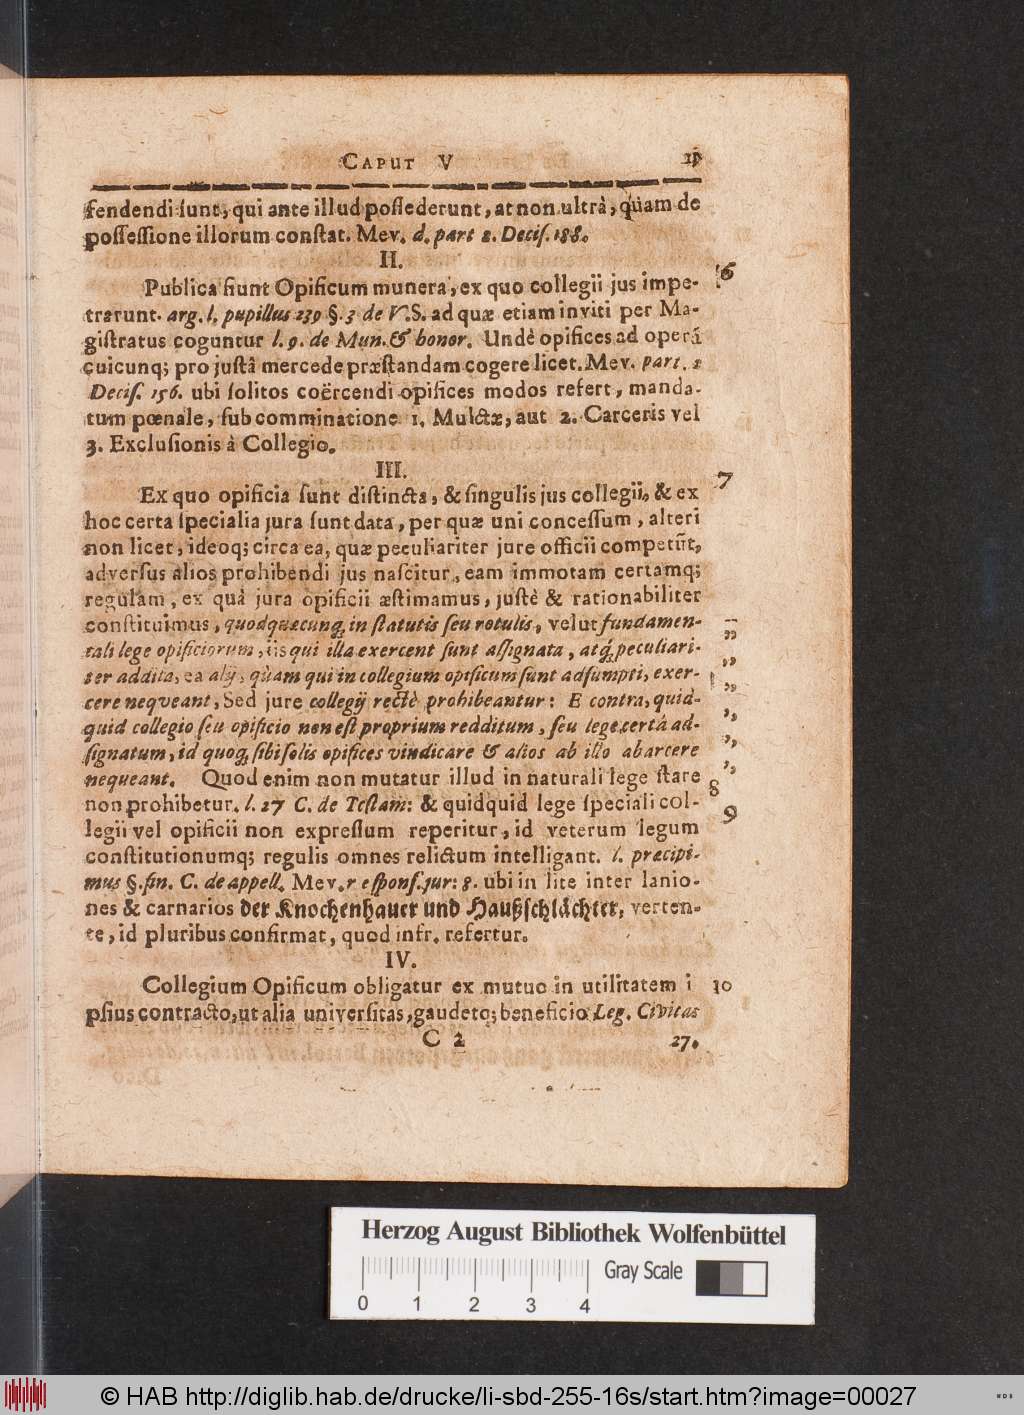 CAPUT V
fendendi sunt, qui ante illud possederunt, at non ultrà, quam de
possessione illorum constat. Mev. d. part 2. Decis. 188.
II.
Publica fiunt Opificum munera, ex quo collegii jus impe-
trarunt. arg. l. pupillus 239 §. 3 de V. S. ad quæ etiam inviti per Ma-
gistratus coguntur l. 9. de Mun. & honor. Undè opifices ad operá
cuicunq; pro justâ mercede præstandam cogere licet. Mev. part. 2
Decis. 156. ubi solitos coërcendi opifices modos refert, manda-
tum pœnale, sub comminatione 1. Mulctæ, aut 2. Carceris vel
3. Exclusionis à Collegio.
III.
Ex quo opificia sunt distincta, & singulis jus collegii, & ex
hoc certa specialia jura sunt data, per quæ uni concessum, alteri
non licet, ideoq; circa ea, quæ peculiariter jure officii competũt,
adversus alios prohibendi jus nascitur, eam immotam certamq;
regulam, ex quâ jura opificii æstimamus, justè & rationabiliter
constituimus, quodquæcunq, in statutis seu rotulis, velut fundamen-
tali lege opificiorum, iis qui illa exercent sunt assignata, atq, peculiari-
ter addita, ea alij, quàm qui in collegium opificum sunt adsumpti, exer-
cere neqveant, Sed jure collegij rectè prohibeantur: E contra, quid-
quid collegio seu opificio non est proprium redditum, seu lege certâ ad-
signatum, id quoq, sibi solis opifices vindicare & alios ab illo abarcere
nequeant. Quod enim non mutatur illud in naturali lege stare
non prohibetur. l. 27 C. de Testam: & quidquid lege speciali col-
legii vel opificii non expressum reperitur, id veterum legum
constitutionumq; regulis omnes relictum intelligant. l. præcipi-
mus §. fin. C. de appell. Mev. respons. jur: 8. ubi in lite inter lanio-
nes & carnarios der Knochenhauer und Haußschlächter, verten-
te, id pluribus confirmat, quod infr. refertur.
IV.
Collegium Opificum obligatur ex mutuo in utilitatem i
psius contracto, ut alia universitas, gaudetq; beneficio Leg. Civitas
C 2 27.
6
7
8
9
10
Herzog August Bibliothek Wolfenbüttel
0 1 2 3 4
Gray Scale
© HAB http://diglib.hab.de/drucke/li-sbd-255-16s/start.htm?image=00027